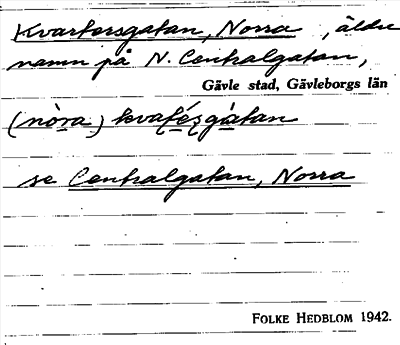 Kvartersgatan, Norra, äldre
namn på N. Centralgatan,
Gävle stad, Gävleborgs län
(nòra) kvatégàtan
se Centralgatan, Norra
FOLKE HEDBLOM 1942.